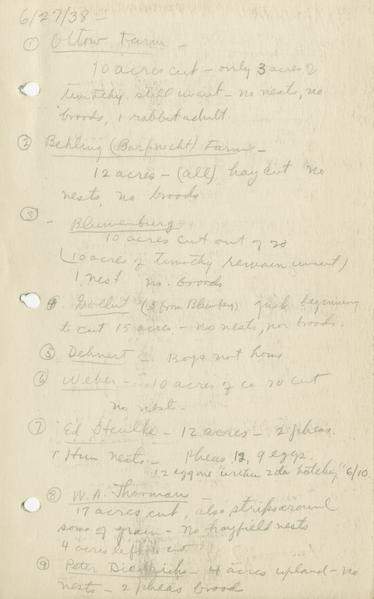 6/27/38 —
① Ottow Farm —
10 acres cut — only 3 acres of
timothy still uncut — no nests, no
broods, 1 rabbit adult.
② Behling (Barfknecht) Farm —
12 acres — (all) hay cut no
nests, no broods
③ - Blumenburg
10 acres cut out of 20
(10 acres of timothy remain uncut)
1 nest no broods
④ (S from Blumbg) just beginning
to cut 15 acres — no nests, nor broods.
⑤ Dehnert — Boys not home
⑥ Weber — 10 acres of ca 20 cut
no nest.
⑦ Ed — 12 acres — 2 pheas.
Hun nests — Pheas 12, 9 eggs.
12 eggs "within 2da hatching" 6/10.
⑧ W.A. Thorman —
17 acres cut, also strips around
some of grain — no hayfield nests
4 acres left to cut
⑨ Peter — 4 acres upland — no
nests — 2 pheas broods